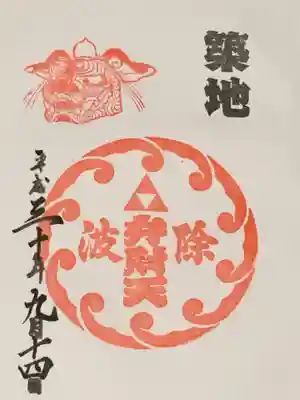 築地
波除
弁財天
平成三十年九月十四日